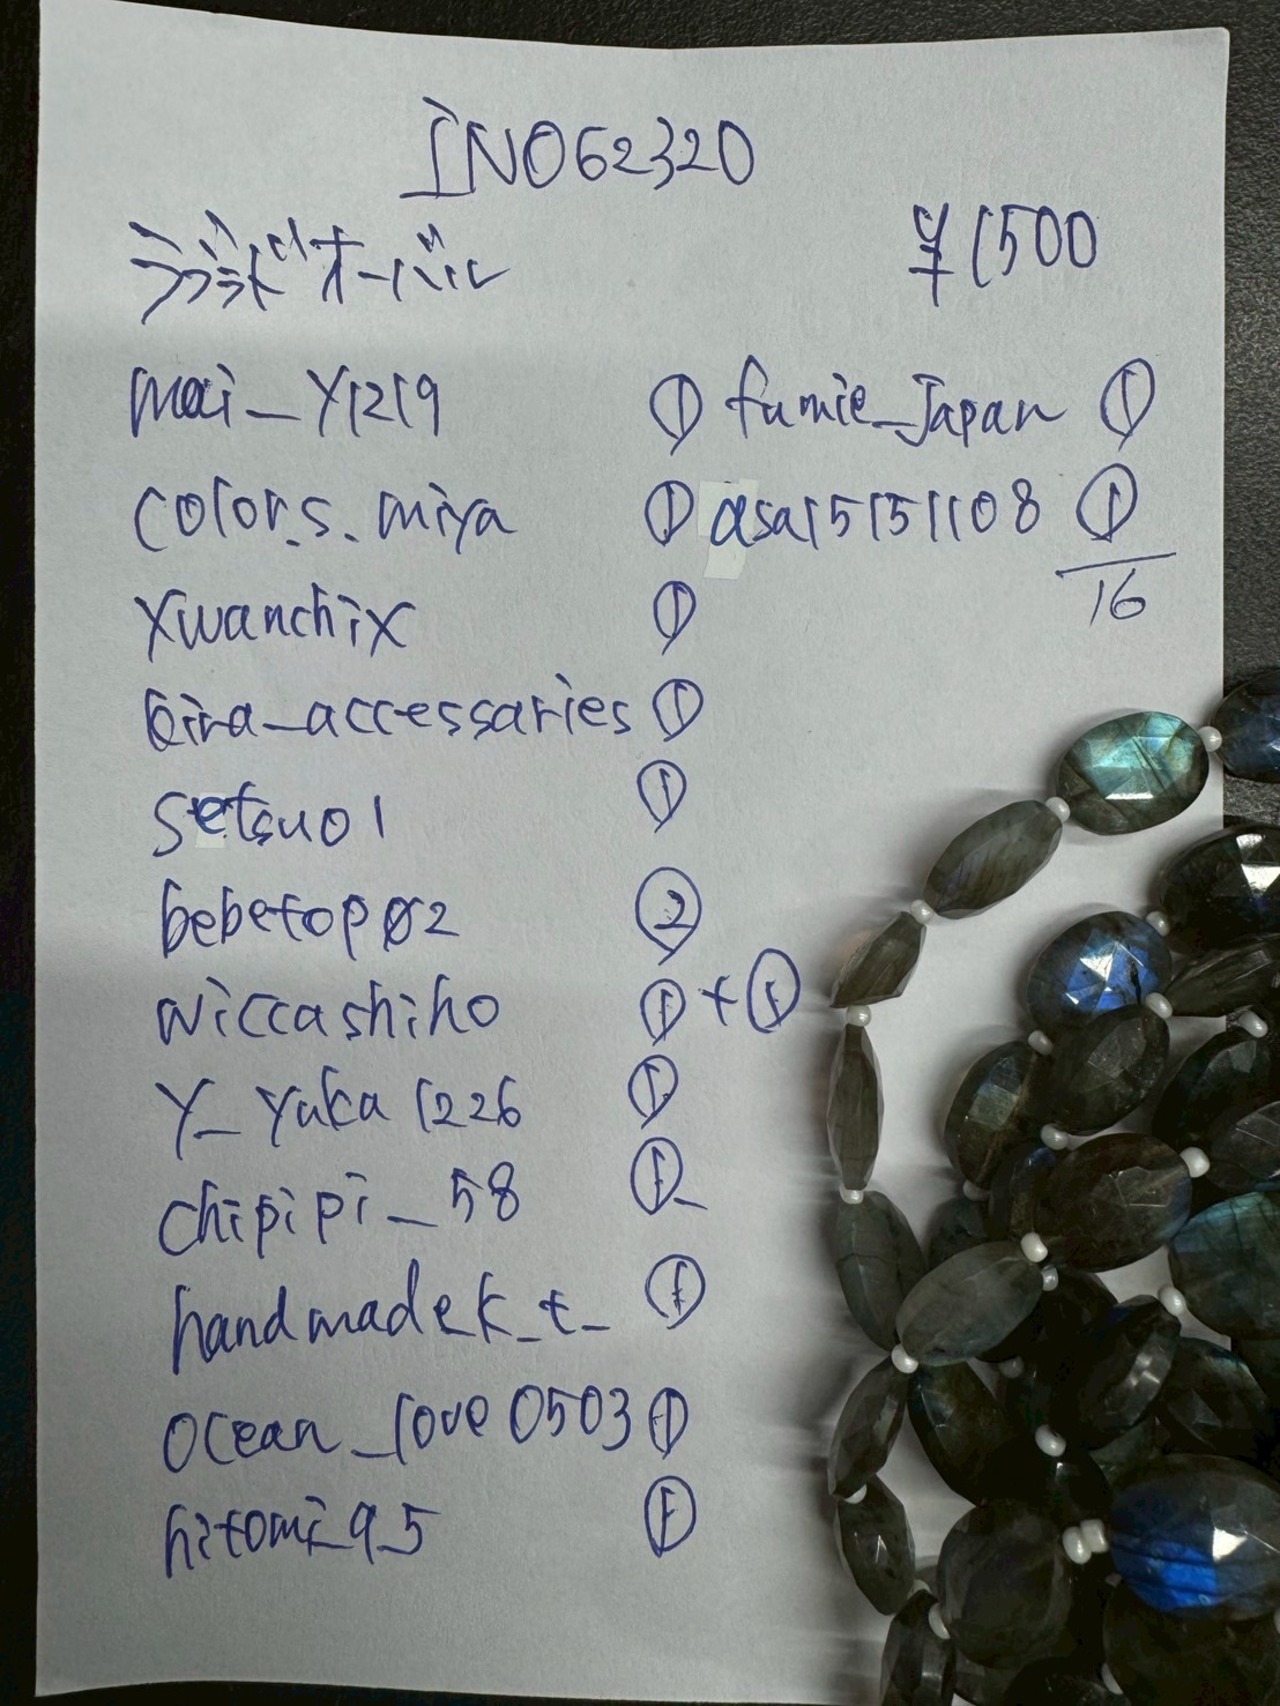 INO62320
ラブラドオーバル ¥1500
mai_y1219 ①
color.s.miya ①
xwanchix ①
kira_accessaries ①
setsuo1 ①
bebetop02 ②
wiccashiho ①+①
y_yuka1226 ①
chipipi_58 ①
handmadek_t_ ①
ocean_love0503 ①
hitomi_9_5 ①
fumie_japan ①
asa15151108 ①
16